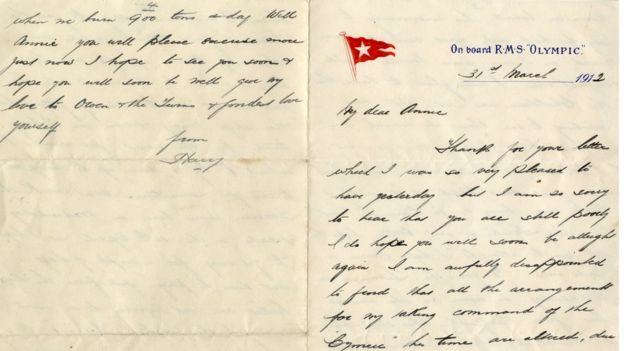 4
when we burn 900 tons a day Well
Annie you will please excuse more
just now I hope to see you soon &
hope you will soon be well give my
love to Owen & the Twins & fondest love
yourself
from
Harry
On board R.M.S. "OLYMPIC."
31st March 1912
My dear Annie
Thanks for your letter
which I was so very pleased to
have yesterday but I am so sorry
to hear that you are still poorly
I do hope you will soon be allright
again I am awfully disappointed
to find that all the arrangements
for my taking command of the
"Cymric" this time are altered, due